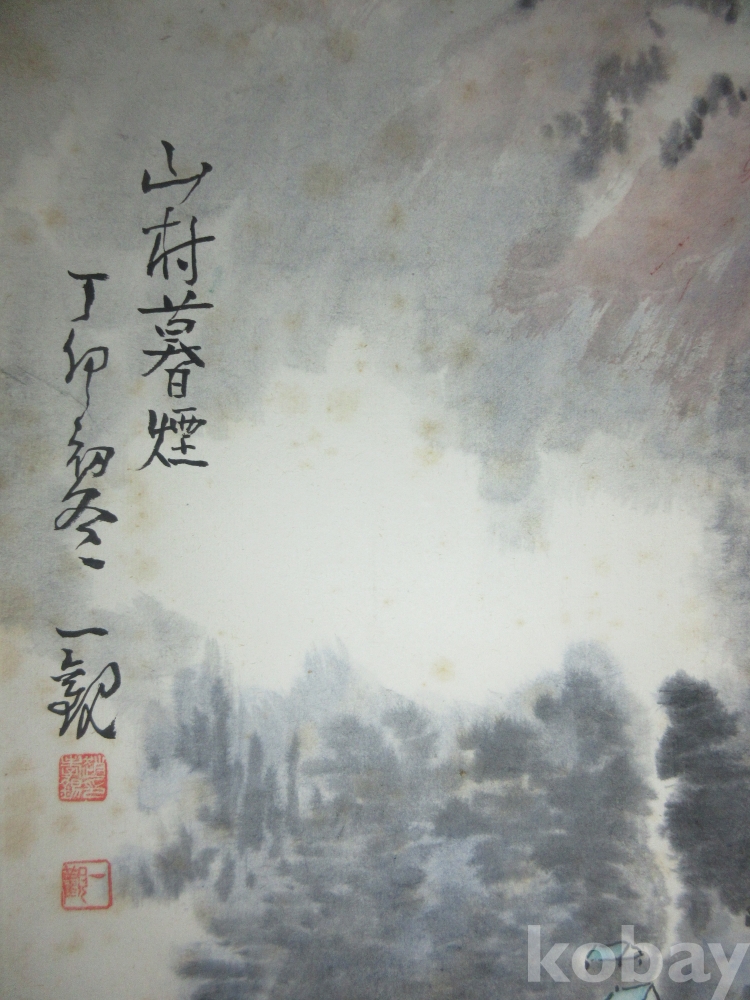 山村暮煙
丁卯初冬 一觀
一觀
kobay